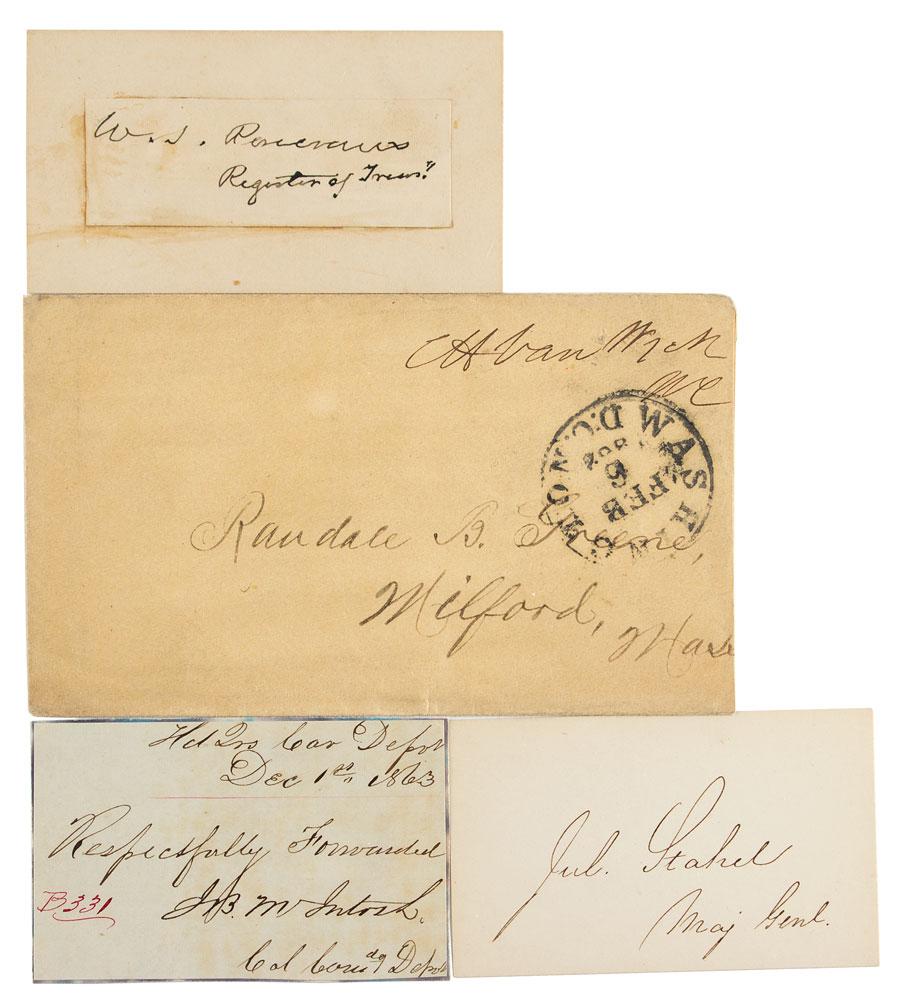 W. S. Rosecrans
Register of Treas.
C H Van Wyck
MC
WASHINGTON D.C.
FEB
Randale B. Greene,
Milford, Mass
Hd Qrs Cav Depot
Dec 1st 1863
Respectfully Forwarded
B331
J.B. McIntosh.
Col Comdg Depot
Jul. Stahel
Maj Genl.